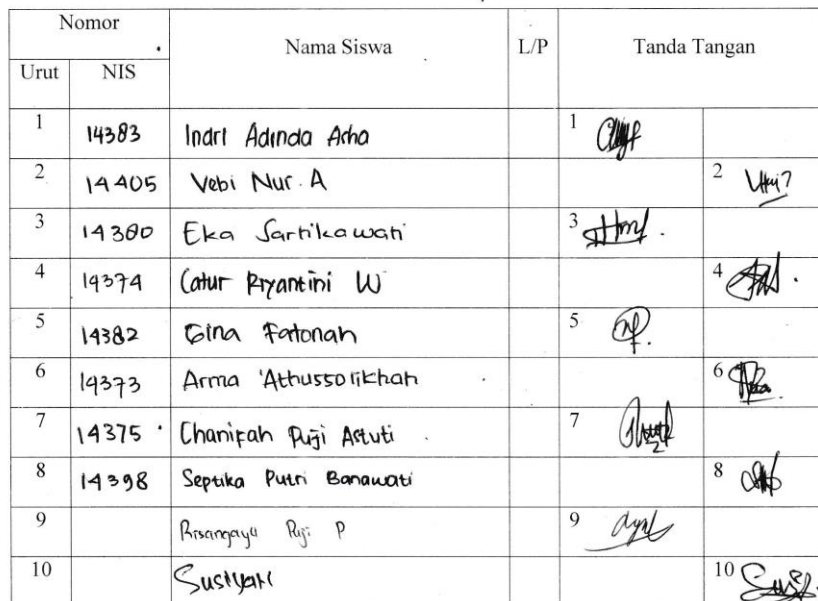 Nomor Nama Siswa L/P Tanda Tangan
Urut NIS
1 14383 Indri Adinda Asha 1
2 14405 Vebi Nur. A 2
3 14380 Eka Sartikawati 3
4 14374 Catur Riyantini W 4
5 14382 Gina Fatonah 5
6 14373 Arma 'Athussolikhah 6
7 14375 Chanifah Puji Astuti 7
8 14398 Septika Putri Banawati 8
9 Risangayu Puji P 9
10 Susiyati 10